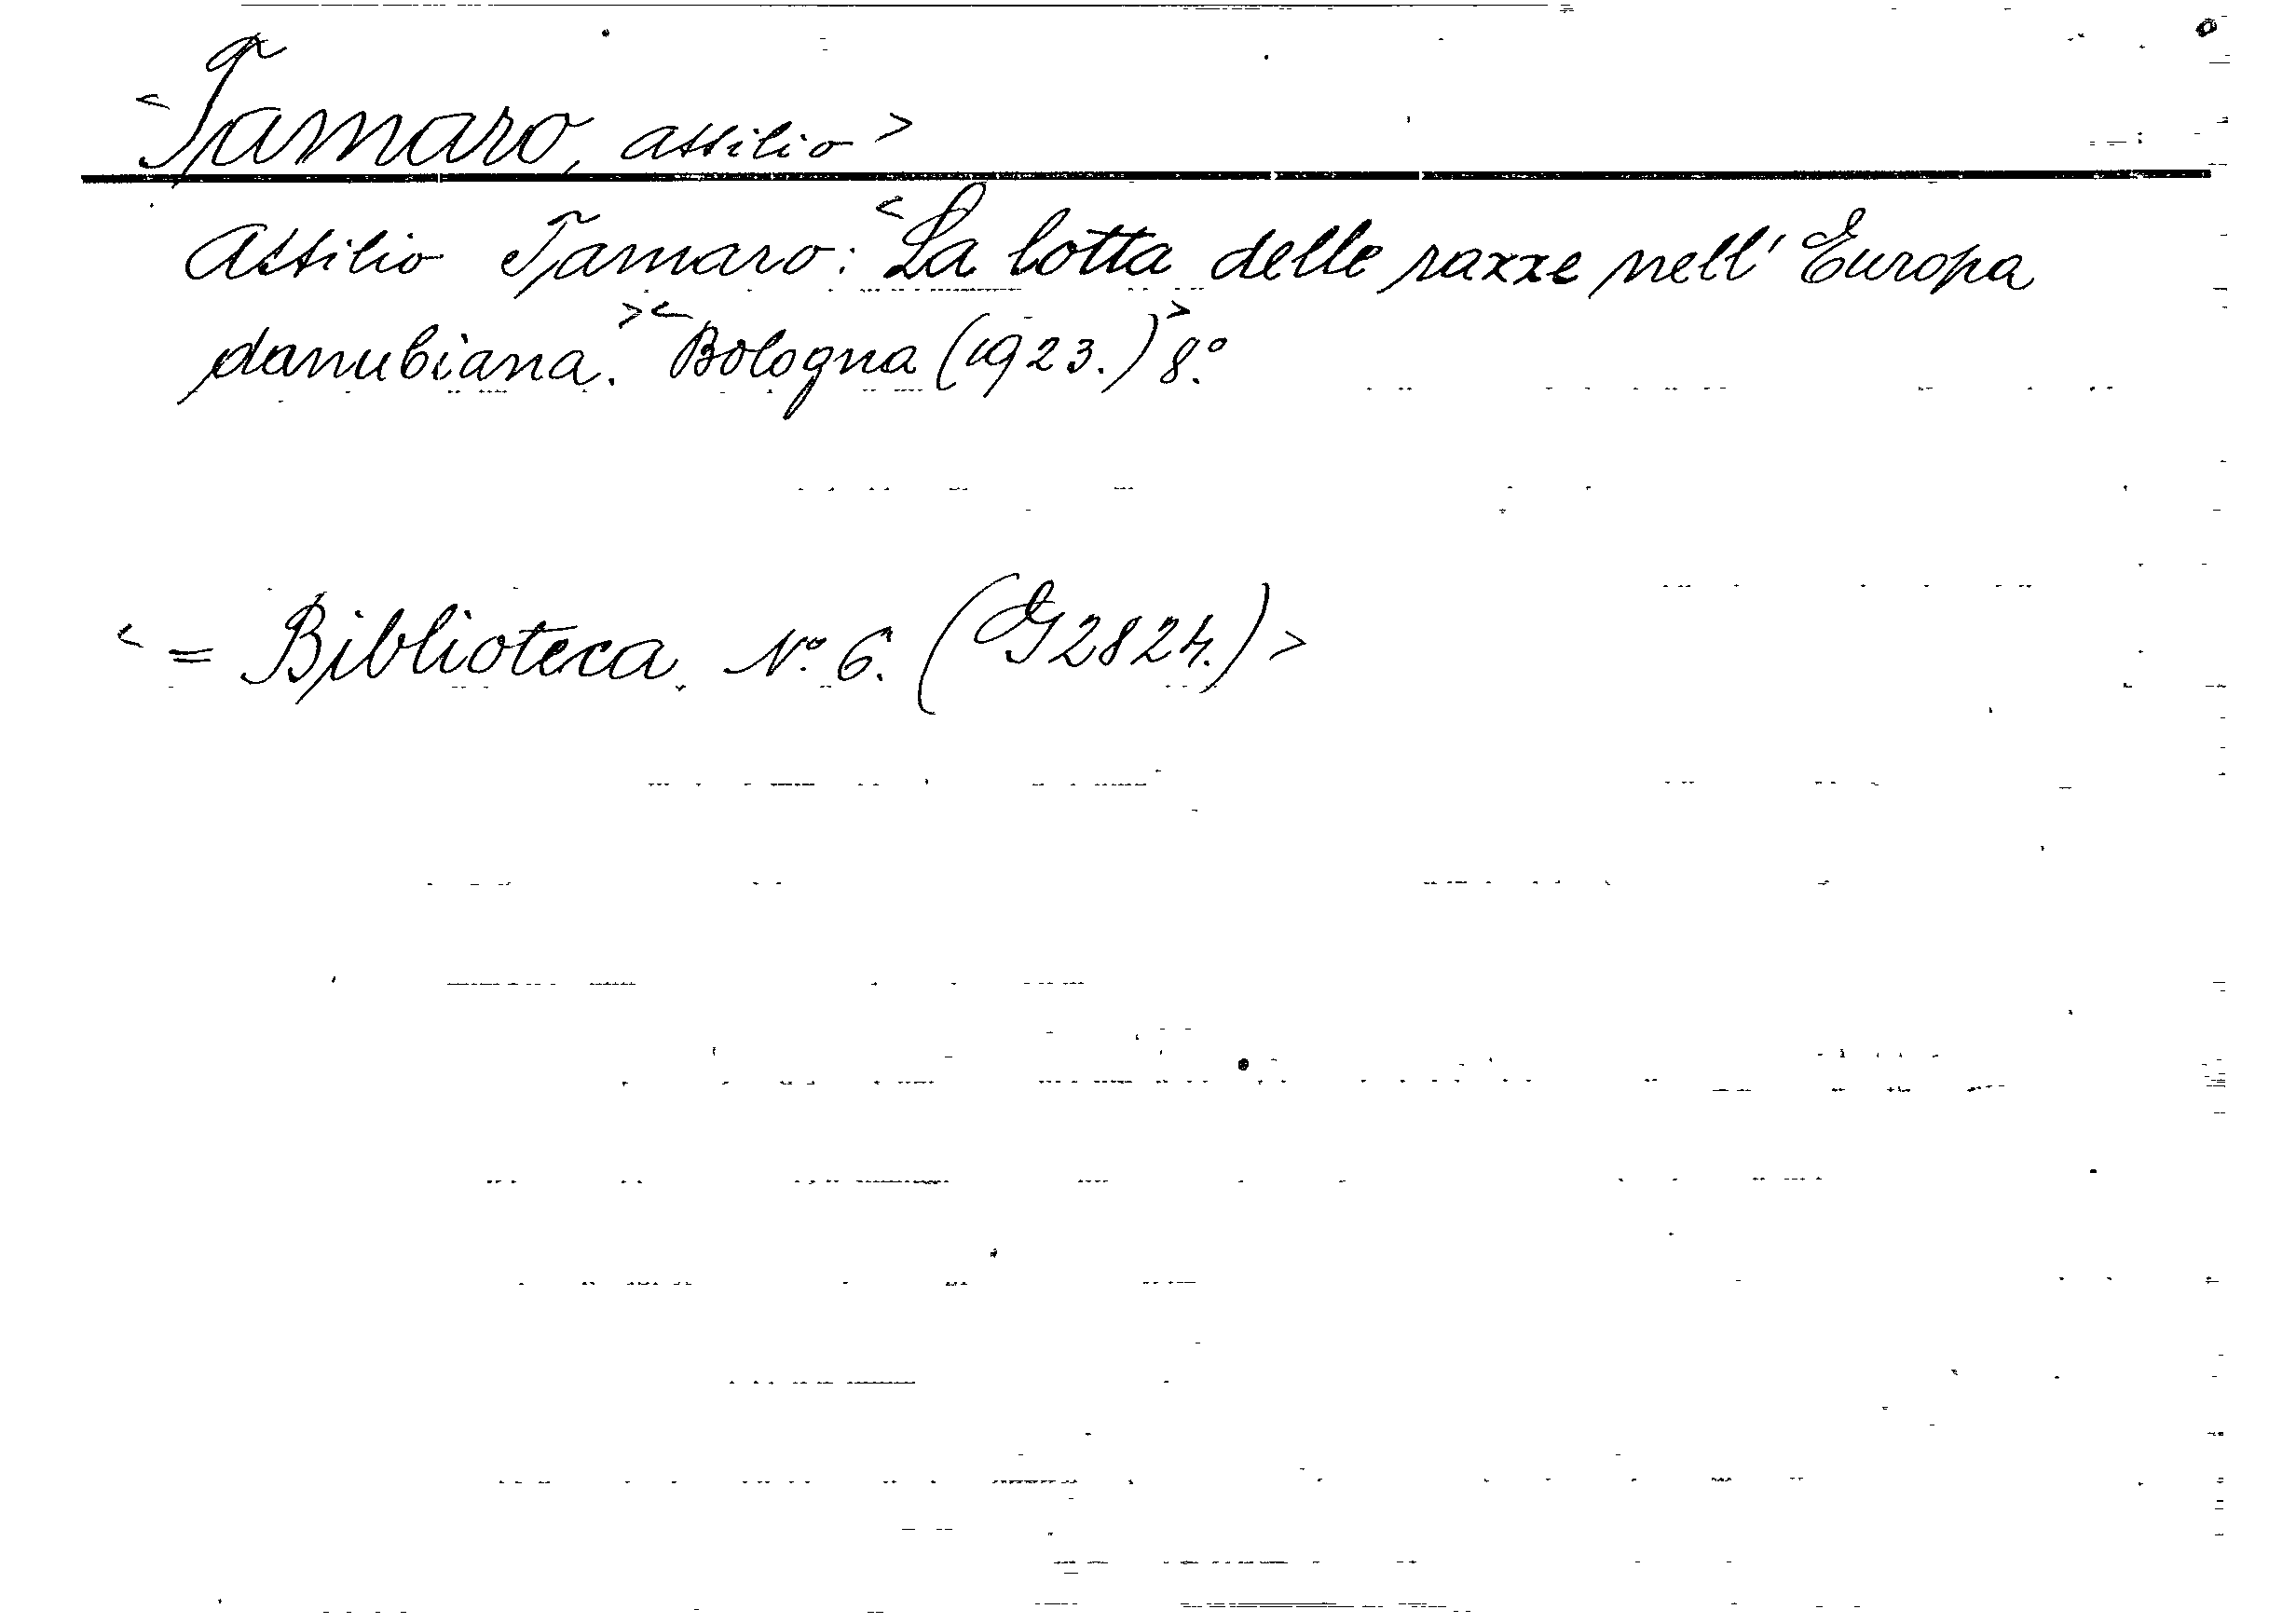 <Tamaro, Attilio>
Attilio Tamaro: <La lotta delle razze nell' Europa
danubiana.><Bologna (1923.)> 8.º
<= Biblioteca. Nº 6. (G2824.)>